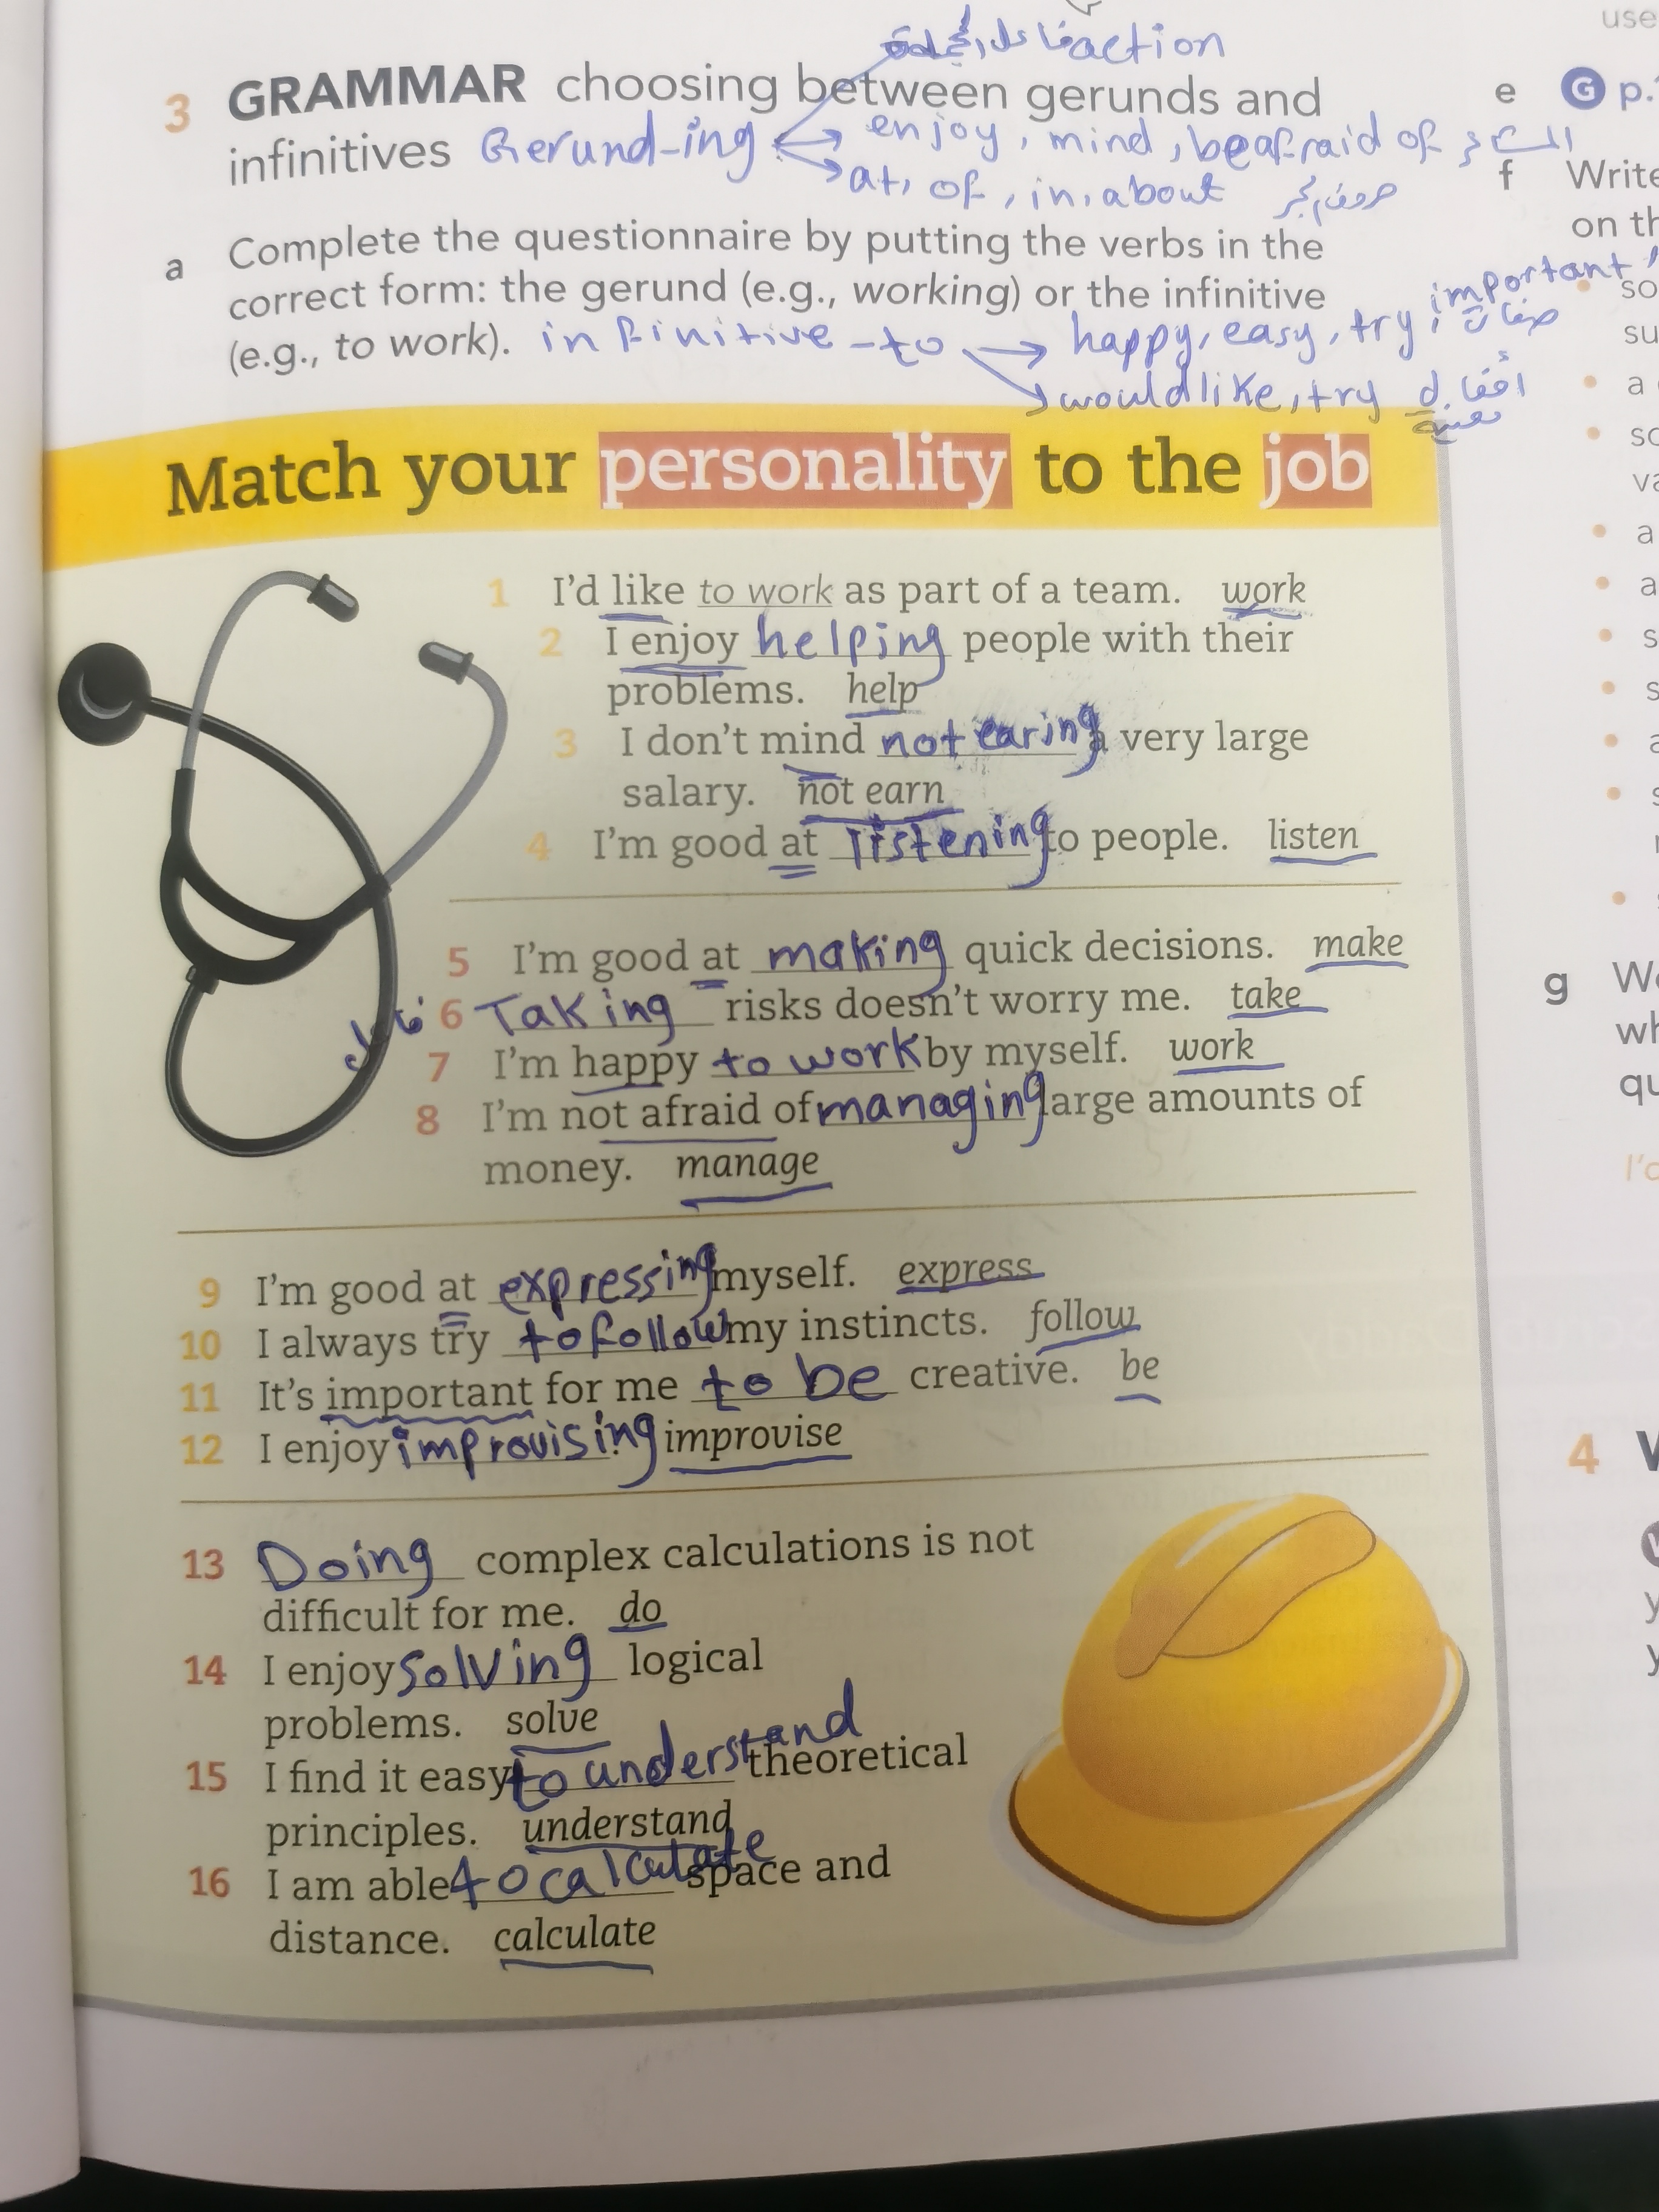 فاعل الجملة action
3 GRAMMAR choosing between gerunds and
infinitives Gerund-ing → enjoy, mind, be afraid of
→ at, of, in, about حروف الجر
a Complete the questionnaire by putting the verbs in the
correct form: the gerund (e.g., working) or the infinitive
(e.g., to work). infinitive -to → happy, easy, try, important صفات
→ would like, try أفعال معينة
Match your personality to the job
1 I'd like to work as part of a team. work
2 I enjoy helping people with their
problems. help
3 I don't mind not earing a very large
salary. not earn
4 I'm good at listening to people. listen
5 I'm good at making quick decisions. make
فاعل 6 Taking risks doesn't worry me. take
7 I'm happy to work by myself. work
8 I'm not afraid of managing large amounts of
money. manage
9 I'm good at expressing myself. express
10 I always try to follow my instincts. follow
11 It's important for me to be creative. be
12 I enjoy improvising. improvise
13 Doing complex calculations is not
difficult for me. do
14 I enjoy solving logical
problems. solve
15 I find it easy to understand theoretical
principles. understand
16 I am able to calculate space and
distance. calculate
use
e G p.
f Write
on th
so
su
a
so
va
a
a
s
s
a
s
g
wh
qu
I'd
4
y
y